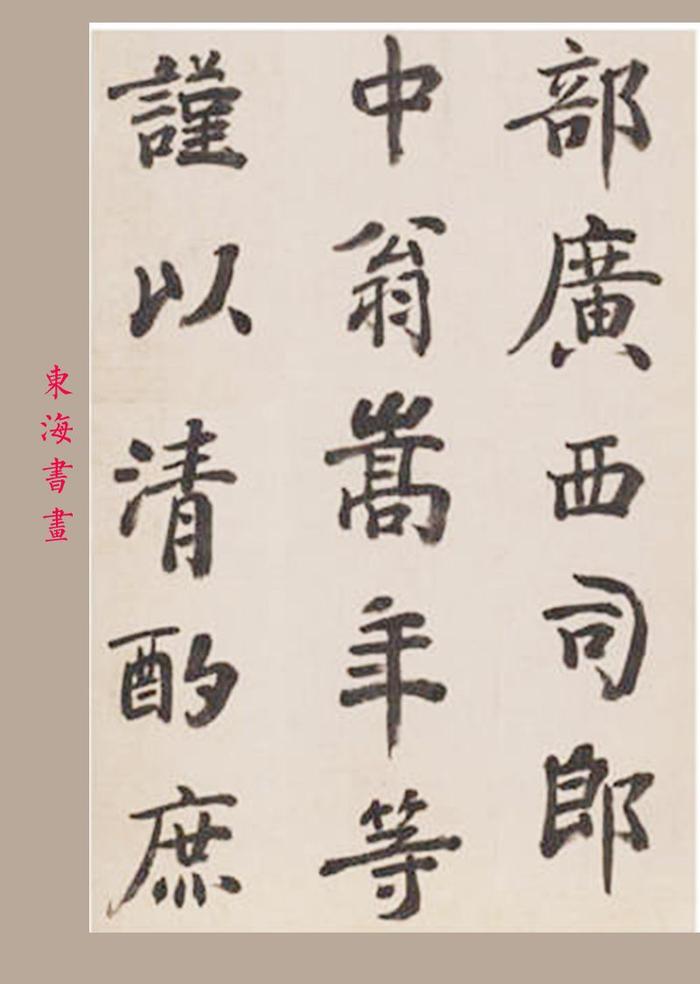 部廣西司郎
中翁嵩年等
謹以清酌庶
東海書畫